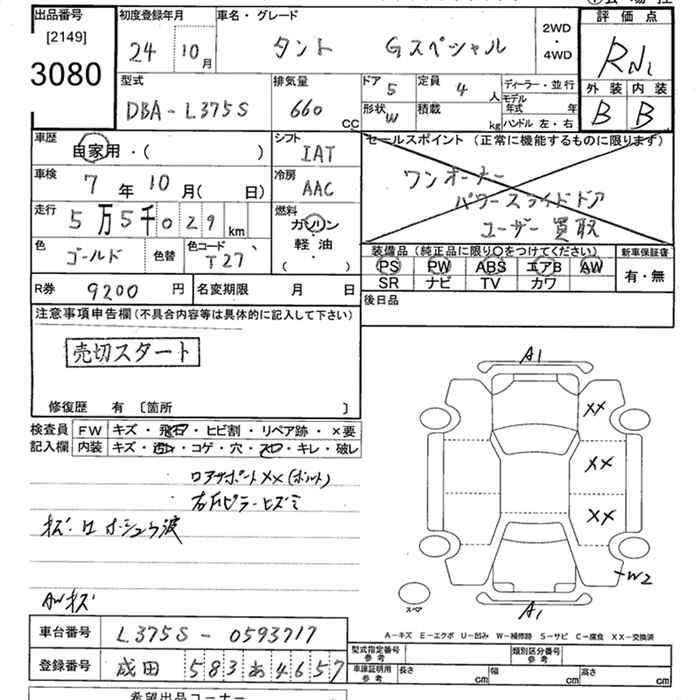 出品番号
[2149]
3080
初度登録年月
24 10月
車名・グレード
タント Gスペシャル
2WD
・
4WD
評価点
RN1
外装 内装
B B
型式
DBA-L375S
排気量
660 CC
ドア 5
定員 4 人
形状 W
積載 kg
ディーラー・並行
モデル年式 年
ハンドル 左・右
車歴
自家用・( )
シフト
IAT
セールスポイント(正常に機能するものに限ります)
ワンオーナー
パワースライドドア
ユーザー買取
車検
7年10月( 日)
冷房
AAC
走行
5万5千029km
燃料
ガソリン
・
軽油
・
( )
色
ゴールド
色替
色コード
T27
装備品(純正品に限り○をつけてください)
新車保証書
PS PW ABS エアB AW
SR ナビ TV カワ
有・無
R券 9200円
名変期限 月 日
後日品
注意事項申告欄(不具合内容等は具体的に記入して下さい)
売切スタート
修復歴 有 〔箇所 〕
検査員 FW キズ・飛石・ヒビ割・リペア跡・×要
記入欄 内装 キズ・汚レ・コゲ・穴・スレ・キレ・破レ
ロアサポートXX(ボルト)
右Fピラーヒズミ
AWキズ
A1
XX
XX
XX
W2
A1
スペア
A-キズ E-エクボ U-凹み W-補修跡 S-サビ C-腐食 XX-交換済
車台番号 L375S-0593717
登録番号 成田583あ4657
型式指定番号
参考
類別区分番号
参考
車庫証明用
参考
長さ cm 幅 cm 高さ cm
希望出品コーナー